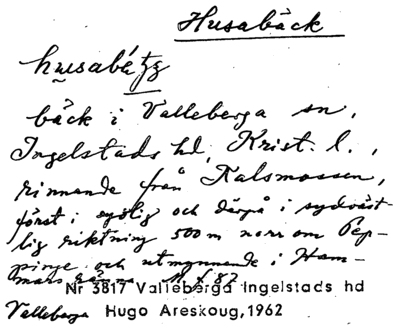 Husabäck
bäck i Valleberga sn,
Ingelstads hd, Krist. l.,
rinnande från Kalsmossen,
först i sydlig och därpå i sydväst-
lig riktning 500 m norr om Pep-
pinge och utmynnande i Ham-
mars
Nr 3817 Valleberga Ingelstads hd
Valleberga Hugo Areskoug, 1962